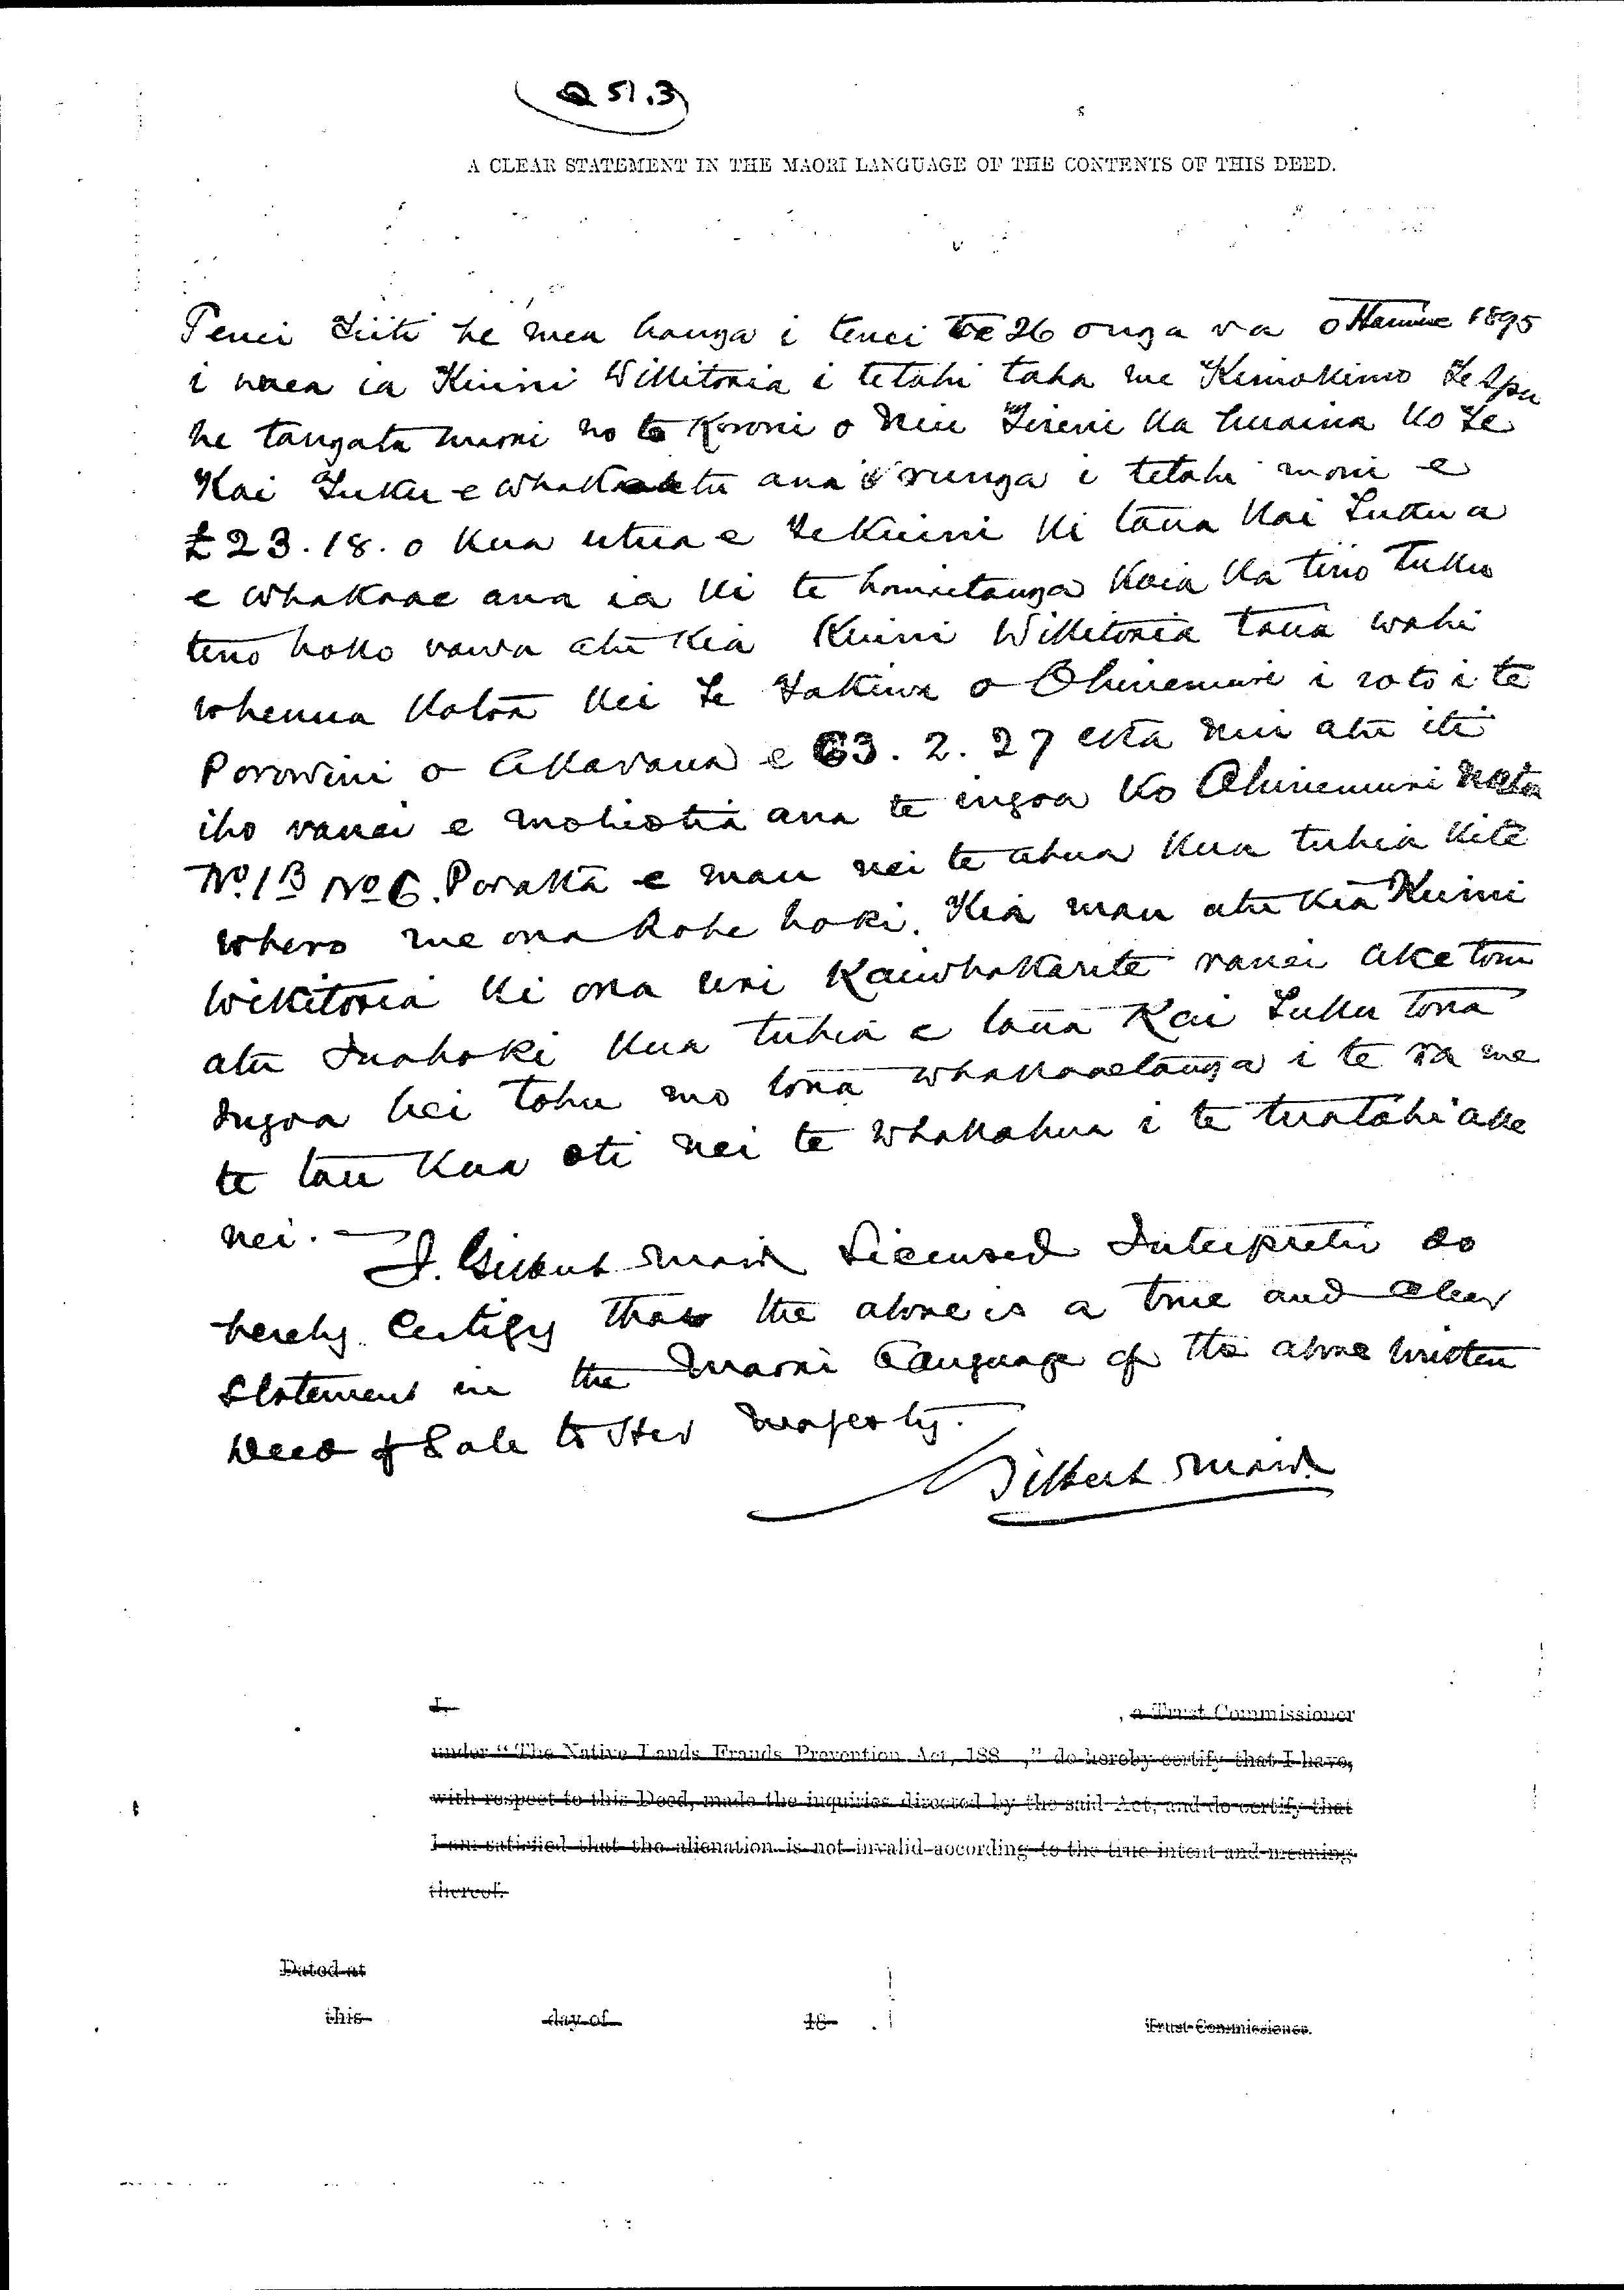 Q 51.3
A CLEAR STATEMENT IN THE MAORI LANGUAGE OF THE CONTENTS OF THIS DEED.
Tenei Tiiti he mea hanga i tenei te 26 o nga ra o Hanuere 1895
i waea ia Kuini Wikitoria i tetahi taha me Kimokimo Te Apu
he tangata maori no te Koroni o Niu Tireni ka huaina ko Te
Kai Tuku e whakaatu ana i runga i tetahi moni e
£23.18.0 kua utua e Te Kuini ki taua Kai Tuku a
e whakaae ana ia ki te homaitanga koia ka tino tuku
tino hoko rawa atu kia Kuini Wikitoria taua wahi
whenua katoa kei Te Takiwa o Ohinemuri i roto i te
Porowini o Akarana e 63.2.27 eka nui atu iti
iho ranei e mohiotia ana te ingoa ko Ohinemuri
No. 1B No 6. Poraka e mau nei te ahua kua tuhia ki te
whero me ona Rohe hoki. Kia mau atu kia Kuini
Wikitoria ki ona uri Kaiwhakarite ranei ake tonu
atu Inahoki kua tuhia e taua Kai Tuku tona
Ingoa hei tohu mo tona whakaaetanga i te ra me
te tau kua oti nei te whakahua i te tuatahi ake
nei.
I. Gilbert Mair Licensed Interpreter do
hereby Certify that the above is a true and clear
Statement in the Maori Language of the above written
Deed of Sale to Her Majesty.
Gilbert Mair
I, , a Trust Commissioner
under "The Native Lands Frauds Prevention Act, 188 ," do hereby certify that I have,
with respect to this Deed, made the inquiries directed by the said Act, and do certify that
I am satisfied that the alienation is not invalid according to the true intent and meaning
thereof.
Dated at
this day of 18 .
Trust Commissioner.